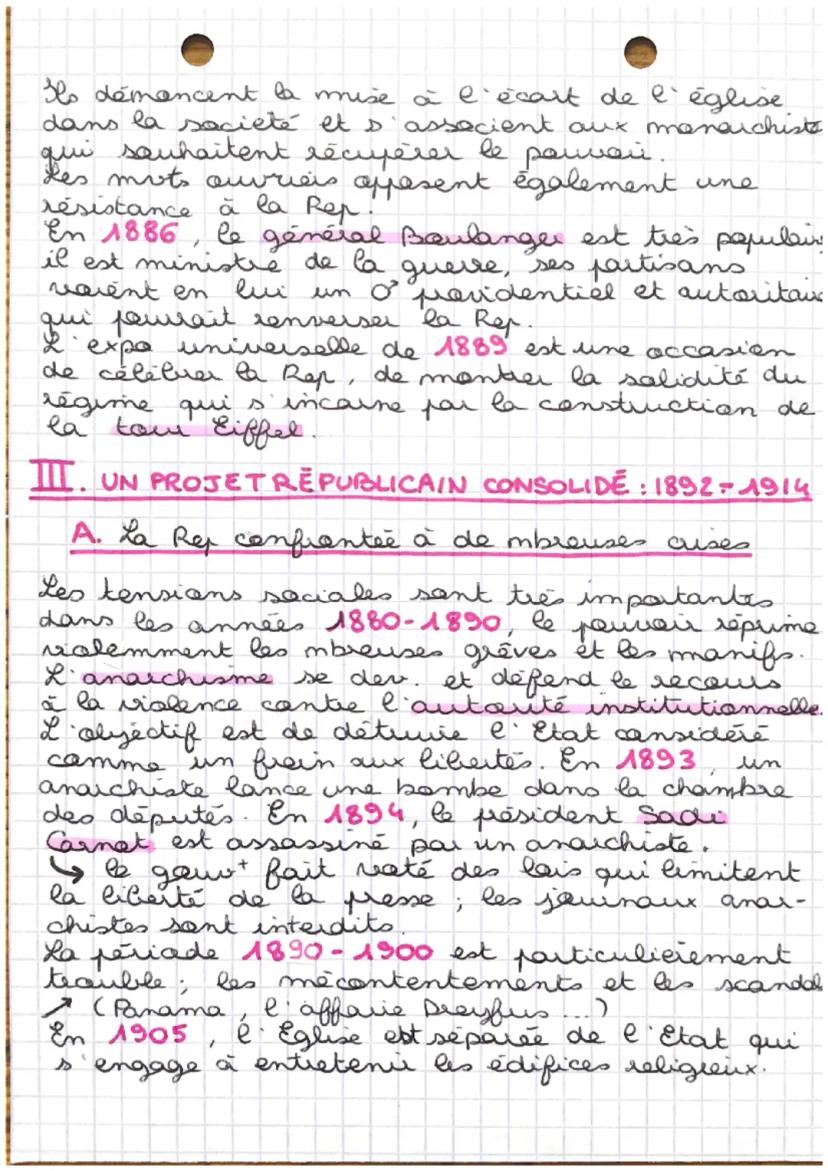 Ils démoncent la mise à l'écart de l'église
dans la societé et s'associent aux monarchiste
qui souhaitent récupérer le pouvoir.
Les mvts ouvriers opposent également une
résistance à la Rep.
En 1886, le général Boulanger est très populair
il est ministre de la guerre, ses partisans
voient en lui un O⁺ providentiel et autoritair
qui pourrait renverser la Rep.
L'expo universelle de 1889 est une occasion
de célébrer la Rep, de montrer la solidité du
régime qui s'incarne par la construction de
la tour Eiffel.
III. UN PROJET RÉPUBLICAIN CONSOLIDÉ : 1892-1914
A. La Rep confrontée à de mbreuses crises
Les tensions sociales sont très importantes
dans les années 1880-1890, le pouvoir réprime
violemment les mbreuses grèves et les manifs.
L'anarchisme se dev. et défend le recours
à la violence contre l'autorité institutionnelle.
L'objectif est de détruire l'Etat considéré
comme un frein aux libertés. En 1893, un
anarchiste lance une bombe dans la chambre
des députés. En 1894, le président Sadi
Carnot est assassiné par un anarchiste.
↳ le gouv⁺ fait voté des lois qui limitent
la liberté de la presse ; les journaux anar-
chistes sont interdits.
La période 1890-1900 est particulièrement
trouble ; les mécontentements et les scandal
↗ (Panama, l'affaire Dreyfus...)
En 1905, l'Eglise est séparée de l'Etat qui
s'engage à entretenir les édifices religieux.